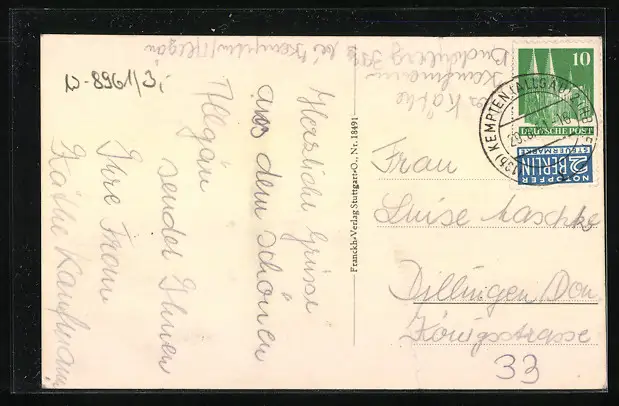 W-8961/3i
Abs Käthe
Kaufmann
Buchenberg 39⅓
bei Kempten/Allgäu
Herzliche Grüsse
aus dem schönen
Allgäu
sendet Ihnen
Ihre Frau
Käthe Kaufmann
Franckh-Verlag Stuttgart-O., Nr. 18491
10
DEUTSCHE POST
KEMPTEN (ALLGÄU)
(13b)
NOTOPFER
2 BERLIN
STEUERMARKE
Frau
Luise Maschke
Dillingen Don
Königsstrasse
33